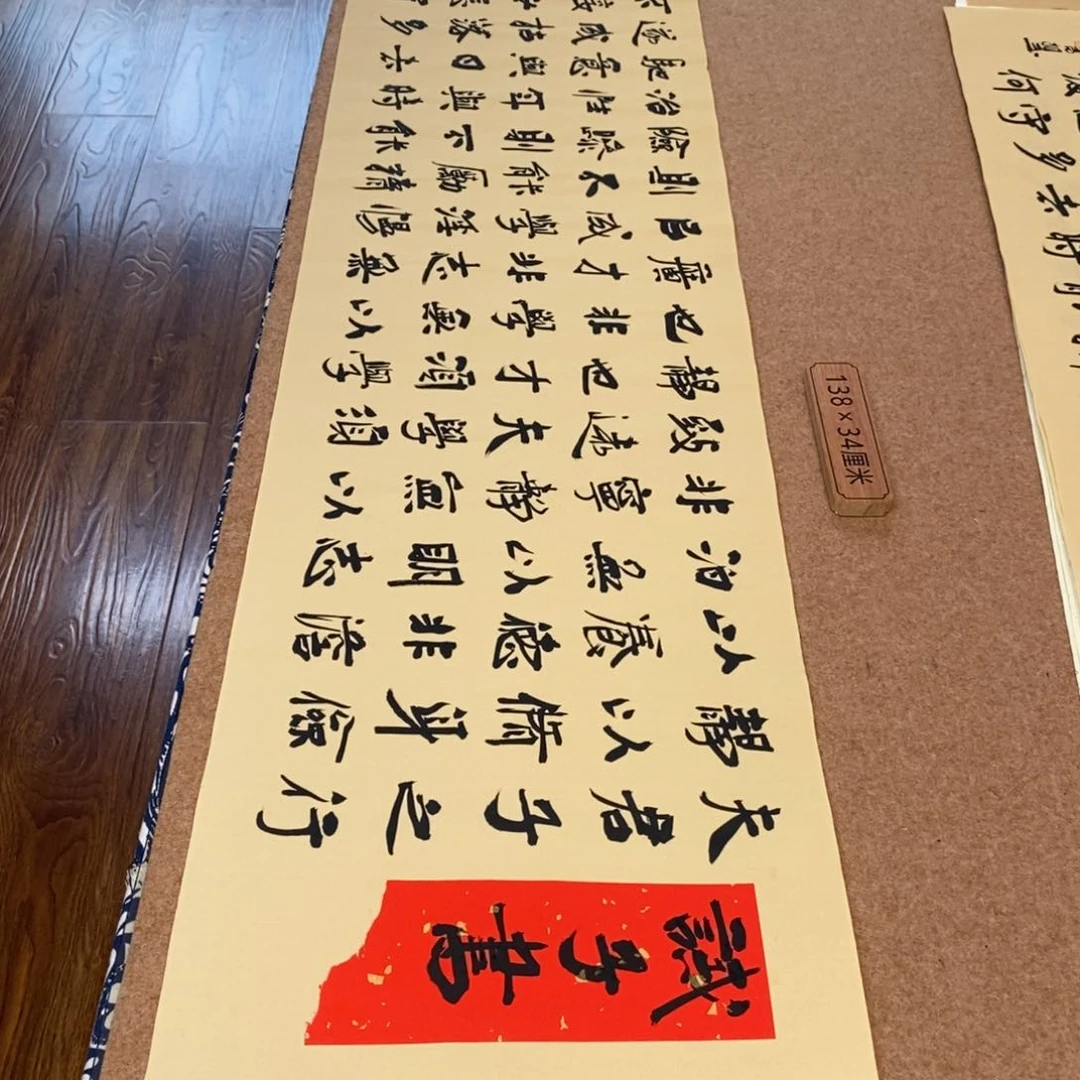 誡子書
夫君子之行
靜以脩身儉
以養德非澹
泊無以明志
非寧靜無以
致遠夫學須
靜也才須學
也非學無以
廣才非志無
㠯成學淫慢
則不能勵精
險躁則不能
治性年與時
馳意與日去
遂成枯落多
138×34厘米
何
守
多
去
時